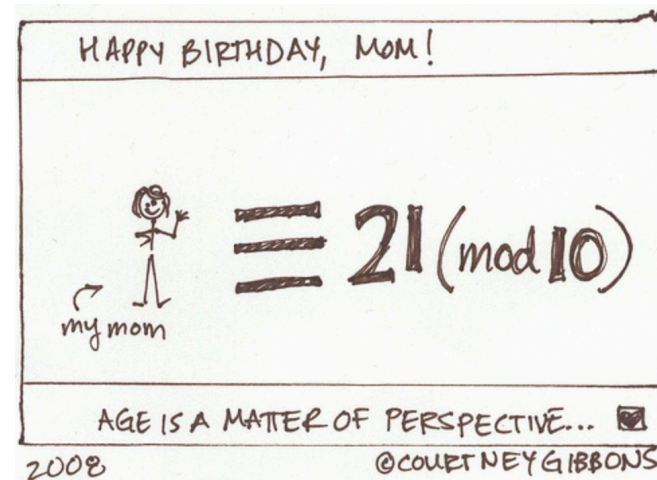 HAPPY BIRTHDAY, MOM!
≡ 21 (mod 10)
my mom
AGE IS A MATTER OF PERSPECTIVE...
2008 ©COURTNEY GIBBONS